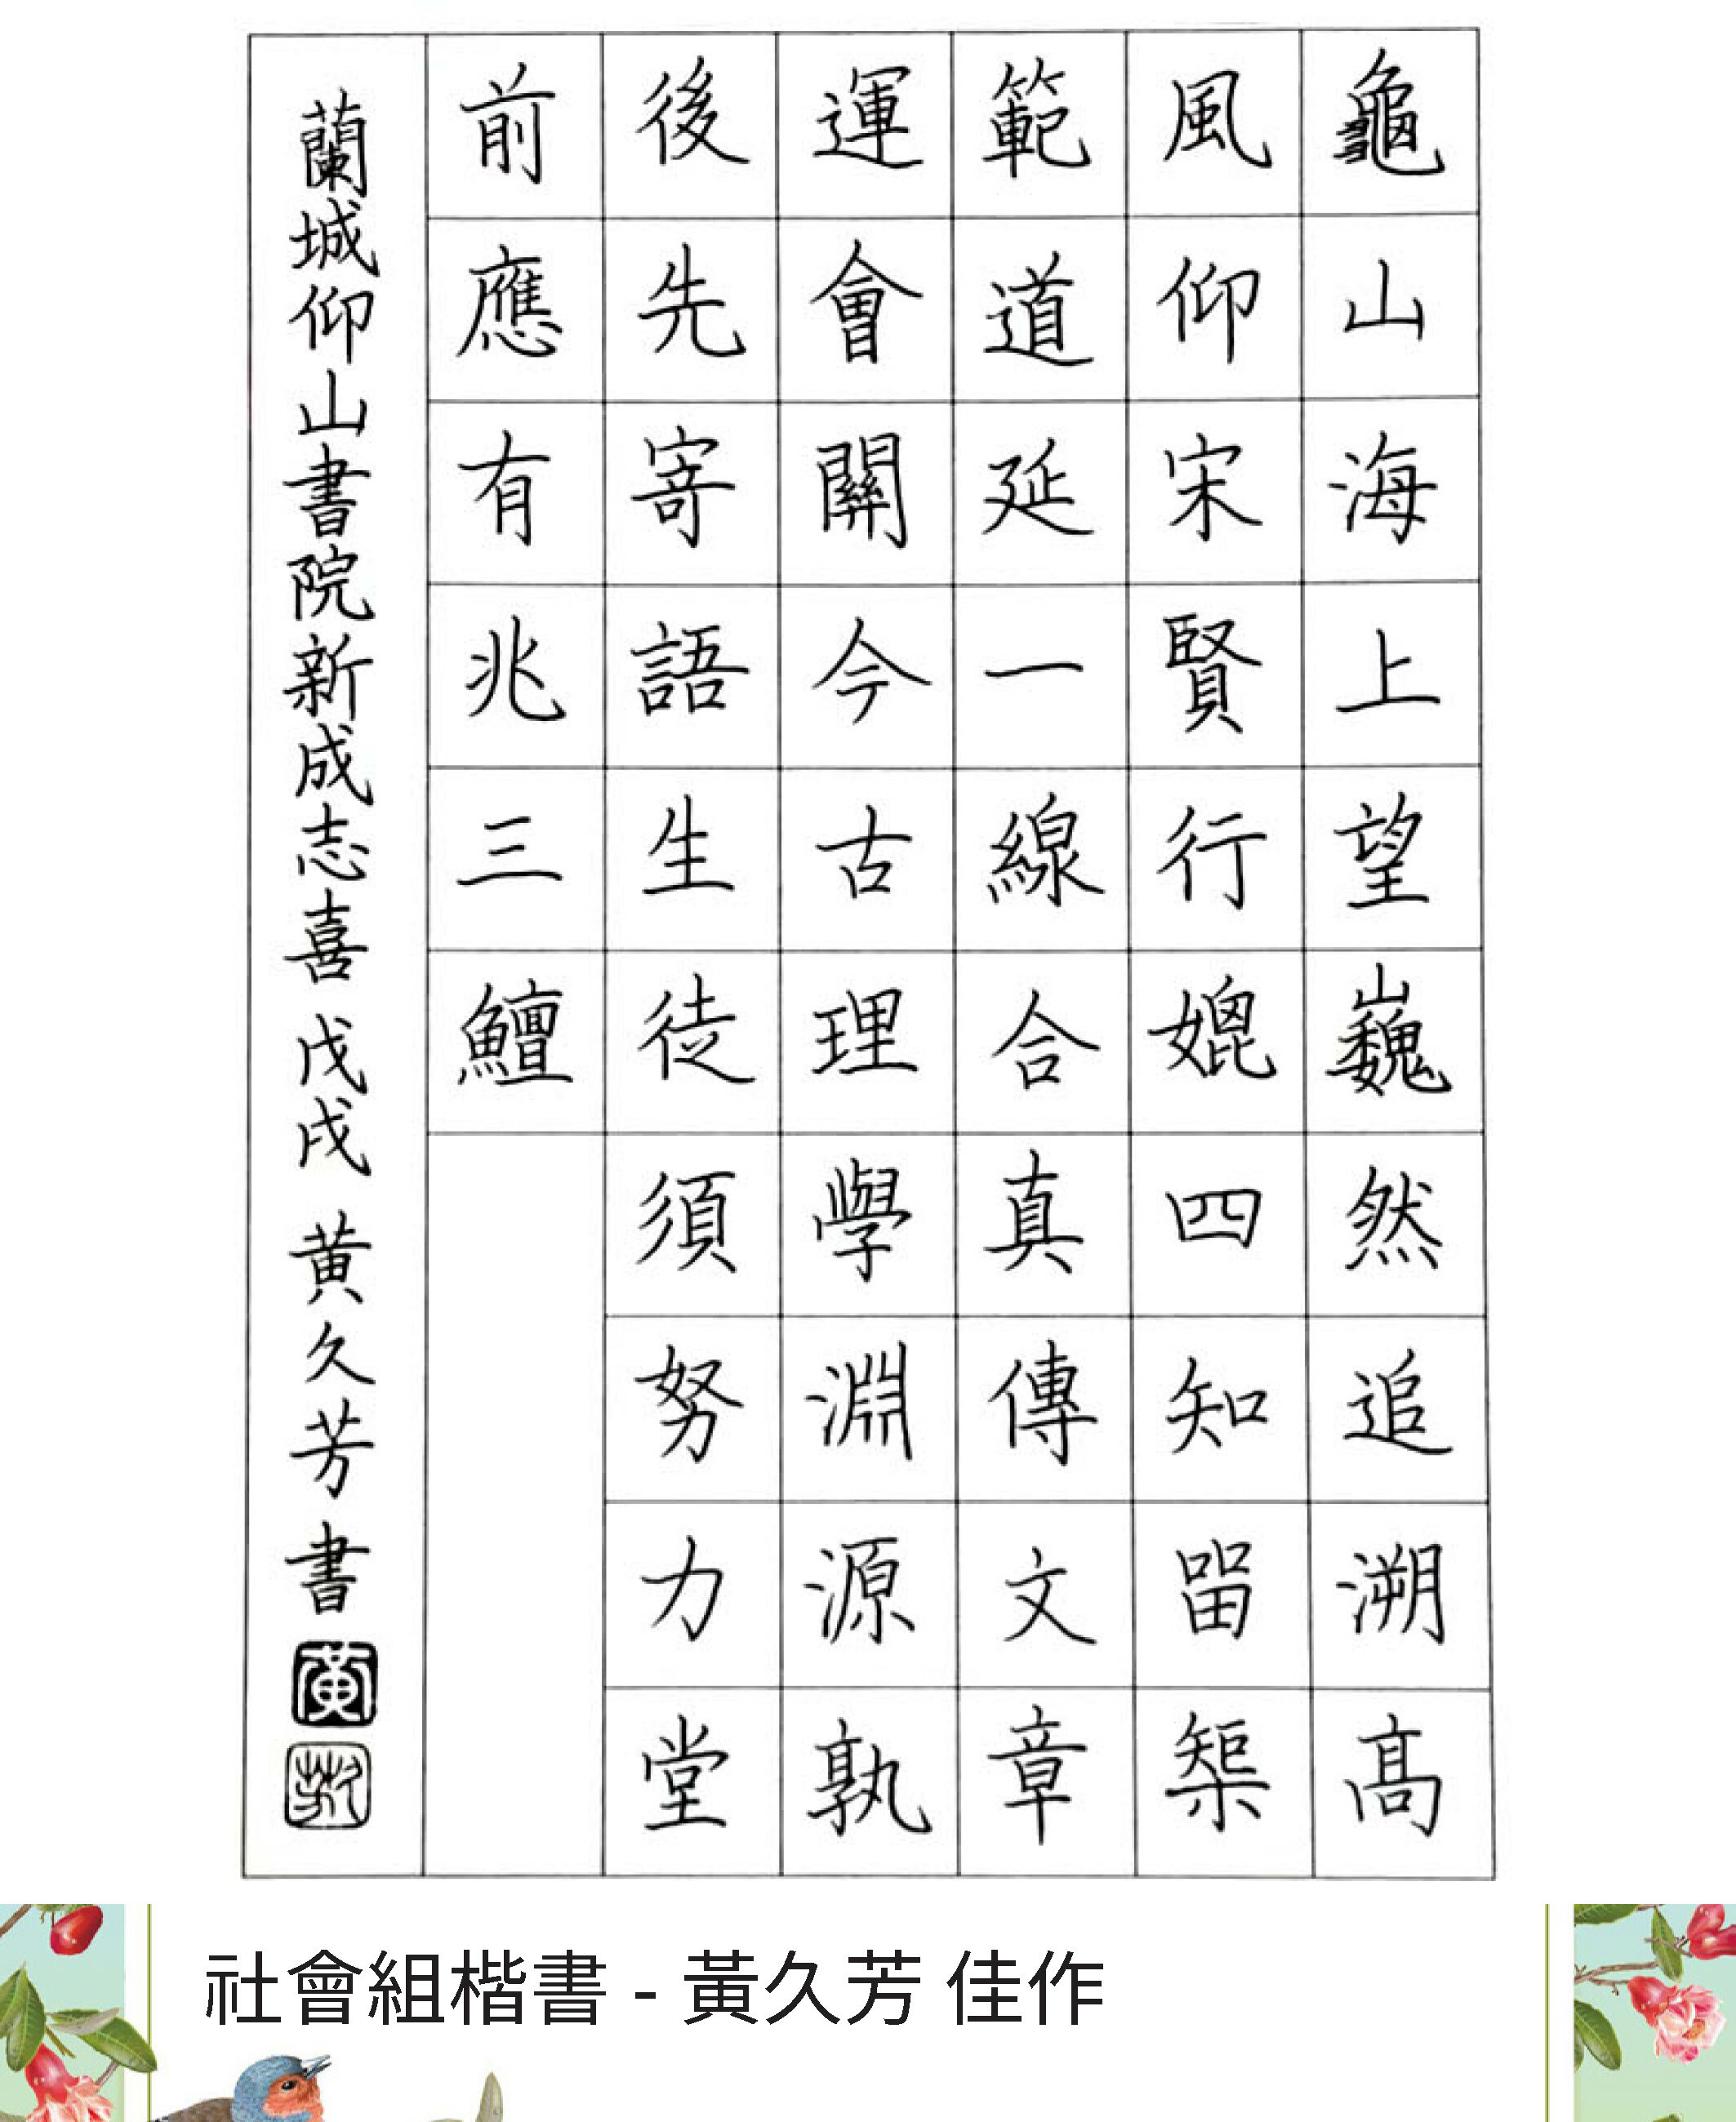 龜山海上望巍然追溯高
風仰宋賢行媲四知留榘
範道延一線合真傳文章
運會關今古理學淵源孰
後先寄語生徒須努力堂
前應有兆三鱣
蘭城仰山書院新成志喜 戊戌 黃久芳 書
社會組楷書 - 黃久芳 佳作